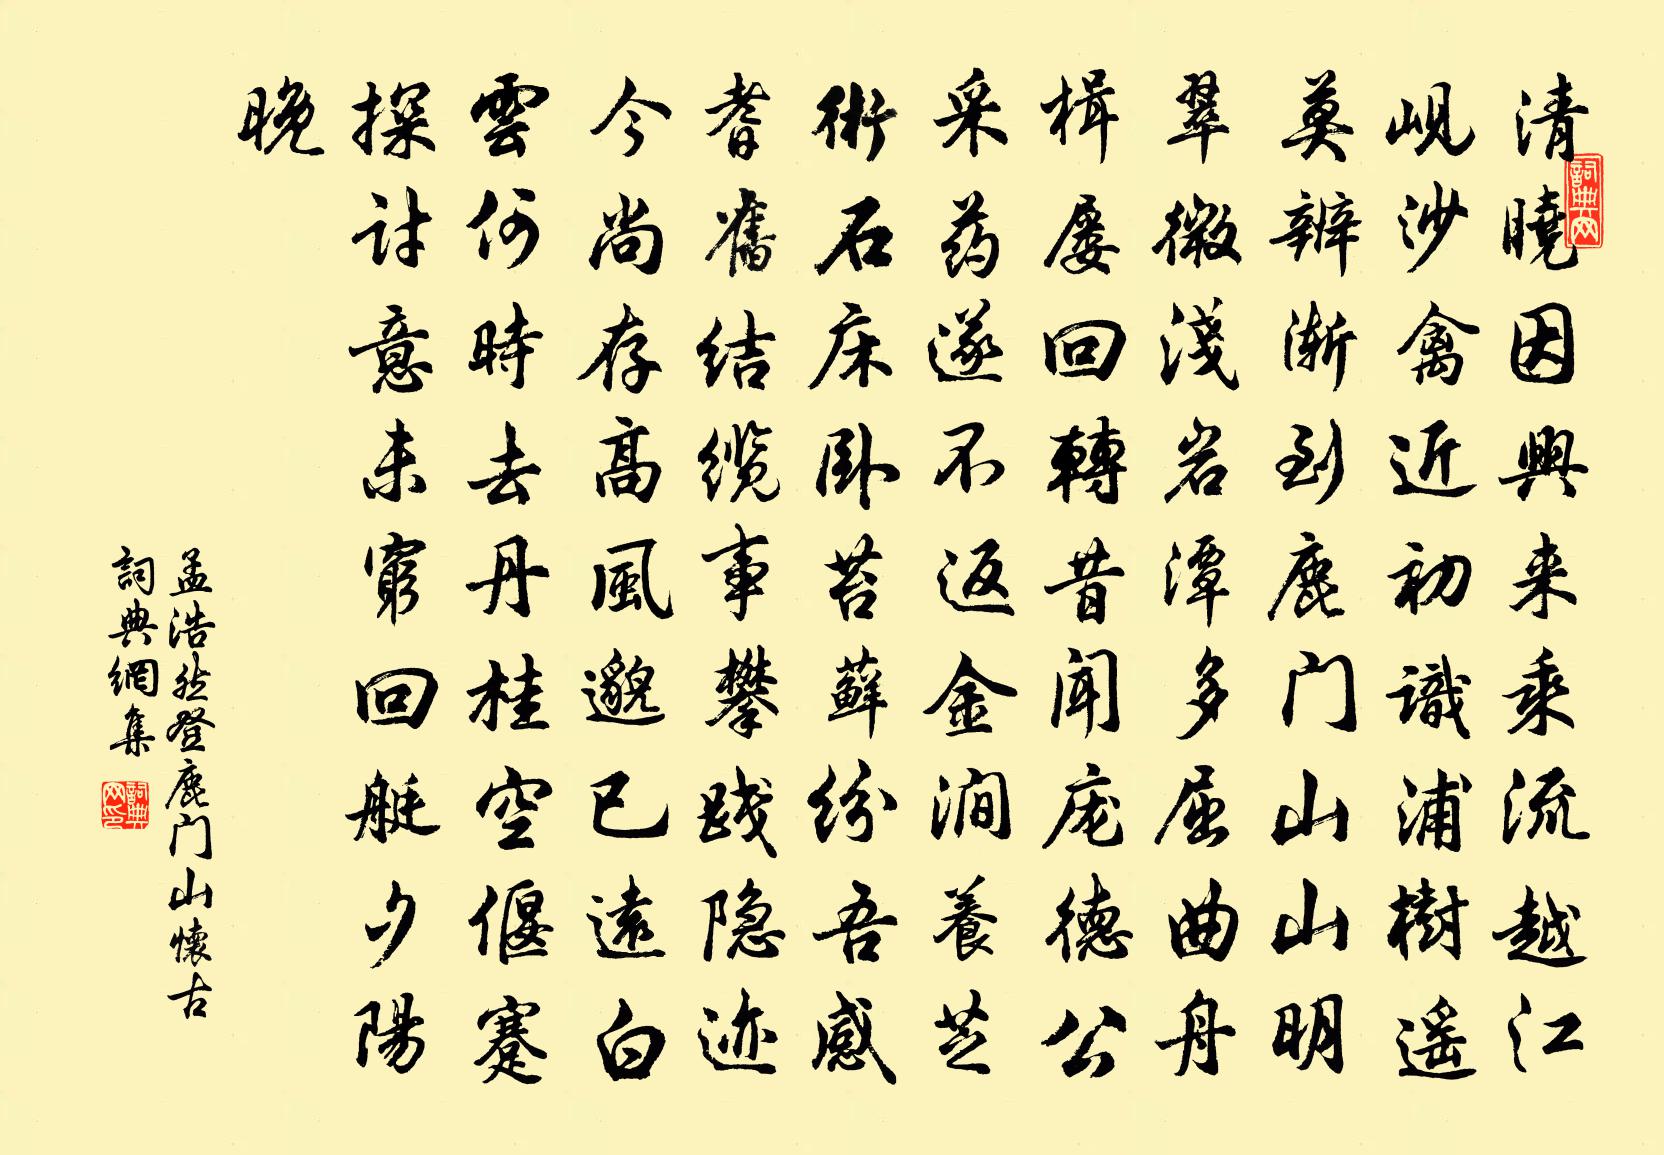 清曉因興来乘流越江
峴沙禽近初識浦樹遥
莫辨渐到鹿门山山明
翠微淺岩潭多屈曲舟
楫屡回轉昔闻庞德公
采药遂不返金澗養芝
術石床卧苔蘚紛吾感
耆舊结缆事攀践隐迹
今尚存高風邈已遠白
雲何時去丹桂空偃蹇
探討意未窮回艇夕陽
晚
孟浩然登鹿门山懷古
詞典網集
詞典网
詞典网印